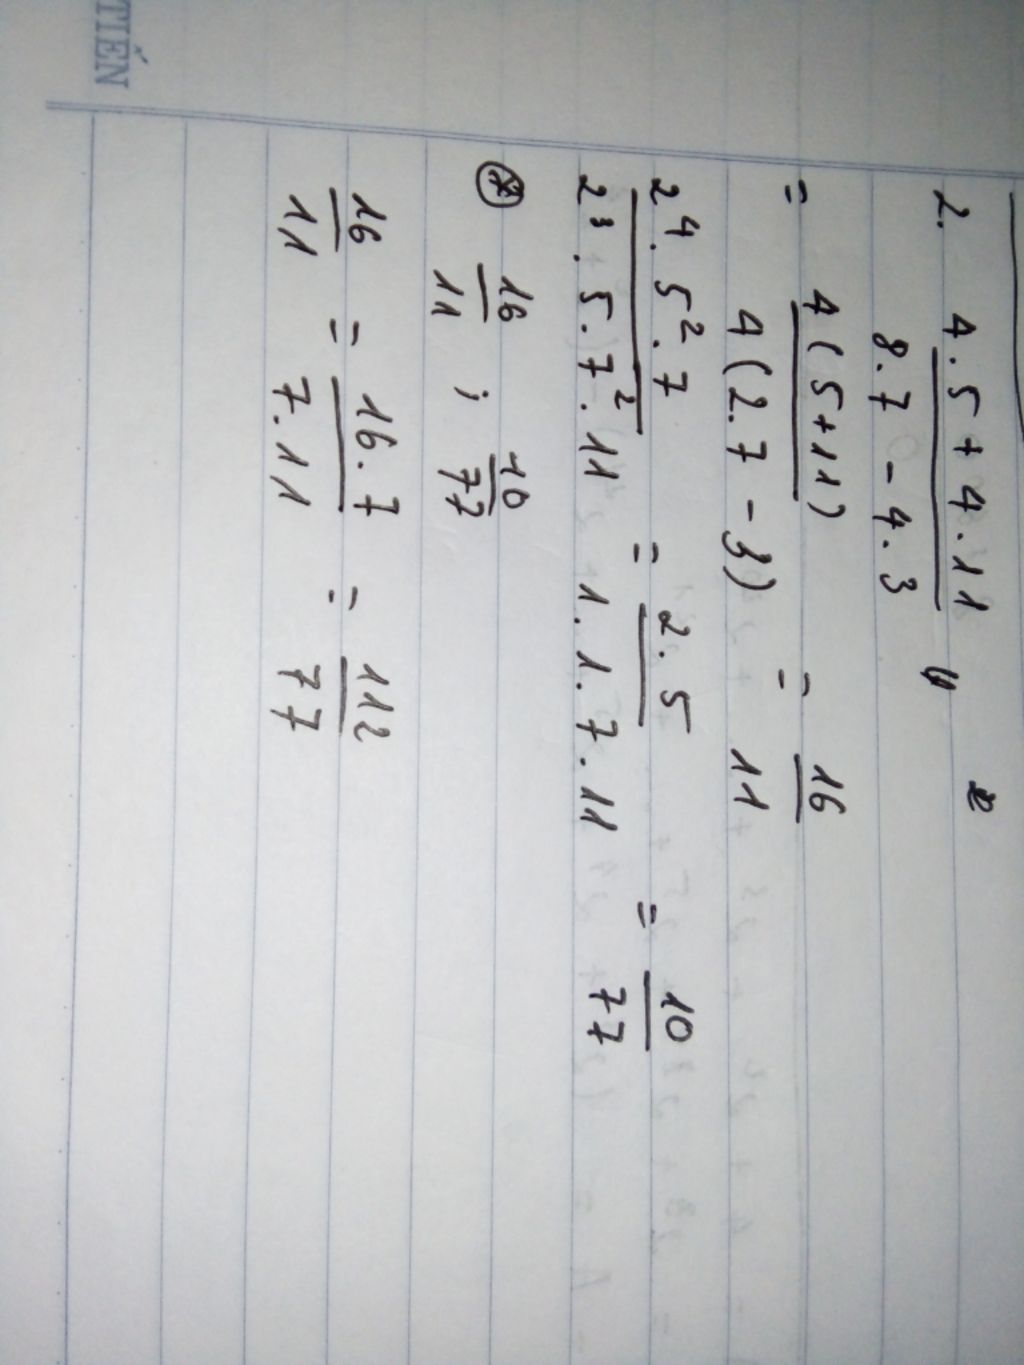 TIẾN
2. (4.5+4.11)/(8.7-4.3)
= 4(5+11)/4(2.7-3) = 16/11
2⁴.5².7/2³.5.7².11 = 2.5/1.1.7.11 = 10/77
* 16/11 ; 10/77
16/11 = 16.7/7.11 = 112/77